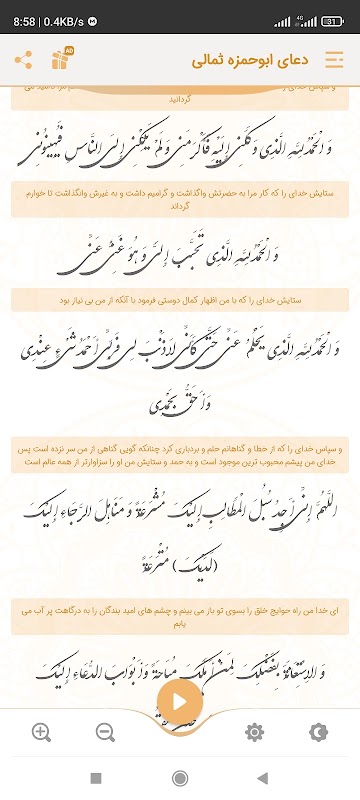 8:58 | 0.4KB/s
4G
31
AD
دعای ابوحمزه ثمالی
گردانید
وَ الْحَمْدُ لِلَّهِ الَّذِی وَکَلَنِی إِلَیْهِ فَأَکْرَمَنِی وَ لَمْ یَکِلْنِی إِلَی النَّاسِ فَیُهِینُونِی
ستایش خدای را که کار مرا به حضرتش واگذاشت و گرامیم داشت و به غیرش وانگذاشت تا خوارم
گرداند
وَ الْحَمْدُ لِلَّهِ الَّذِی تَحَبَّبَ إِلَیَّ وَ هُوَ غَنِیٌّ عَنِّی
ستایش خدای را که با من اظهار کمال دوستی فرمود با آنکه از من بی نیاز بود
وَ الْحَمْدُ لِلَّهِ الَّذِی یَحْلُمُ عَنِّی حَتَّی کَأَنِّی لاَ ذَنْبَ لِی فَرَبِّی أَحْمَدُ شَیْ‏ءٍ عِنْدِی
وَ أَحَقُّ بِحَمْدِی
و سپاس خدای را که از خطا و گناهانم حلم و بردباری کرد چنانکه گویی گناهی از من سر نزده است پس
خدای من پیشم محبوب ترین موجود است و به حمد و ستایش من او را سزاوارتر از همه عالم است
اللَّهُمَّ إِنِّی أَجِدُ سُبُلَ الْمَطَالِبِ إِلَیْکَ مُشْرَعَةً وَ مَنَاهِلَ الرَّجَاءِ إِلَیْکَ
(لَدَیْکَ) مُتْرَعَةً
ای خدا من راه حوایج خلق را بسوی تو باز می بینم و چشم های امید بندگان را به درگاهت پر آب می
یابم
وَ الاِسْتِعَانَةَ بِفَضْلِکَ لِمَنْ أَمَّلَکَ مُبَاحَةً وَ أَبْوَابَ الدُّعَاءِ إِلَیْکَ